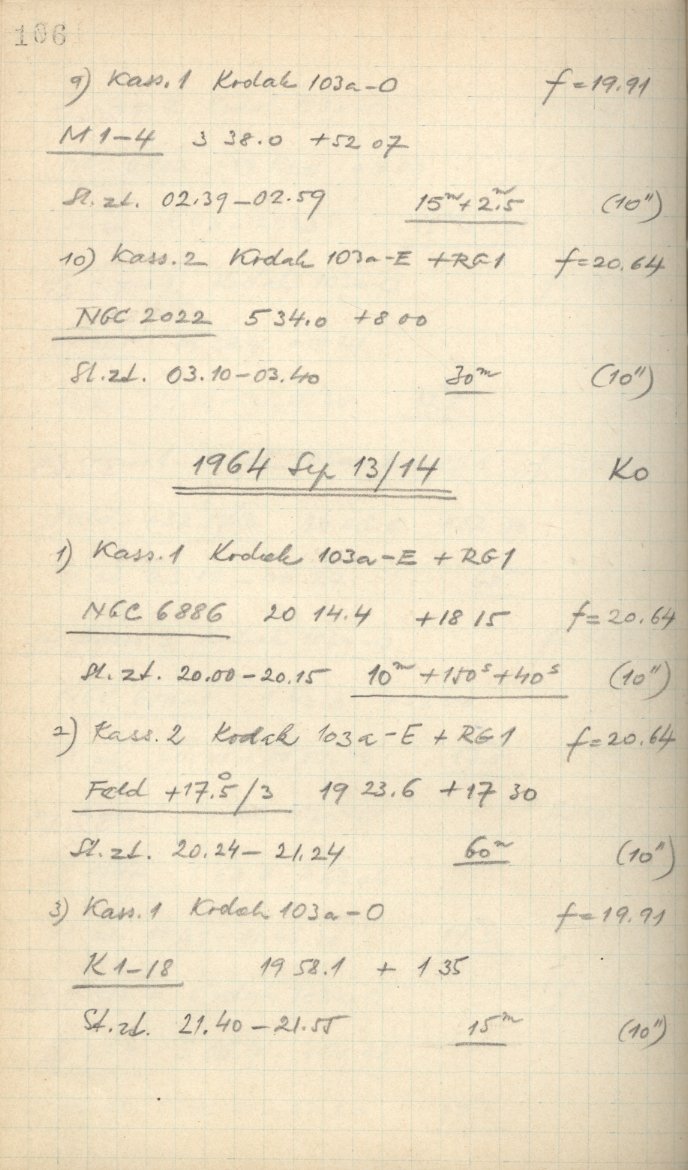 106
9) Kass. 1 Kodak 103a-O f=19.91
M 1-4 3 38.0 +52 07
St. zt. 02.39-02.59 15ᵐ+2ᵐ.5 (10")
10) Kass. 2 Kodak 103a-E +RG1 f=20.64
NGC 2022 5 34.0 +8 00
St. zt. 03.10-03.40 30ᵐ (10")
1964 Sep 13/14 Ko
1) Kass. 1 Kodak 103a-E + RG1
NGC 6886 20 14.4 +18 15 f=20.64
St. zt. 20.00-20.15 10ᵐ+150ˢ+40ˢ (10")
2) Kass. 2 Kodak 103a-E + RG1 f=20.64
Feld +17.°5/3 19 23.6 +17 30
St. zt. 20.24-21.24 60ᵐ (10")
3) Kass. 1 Kodak 103a-O f=19.91
K 1-18 19 58.1 + 1 35
St. zt. 21.40-21.55 15ᵐ (10")